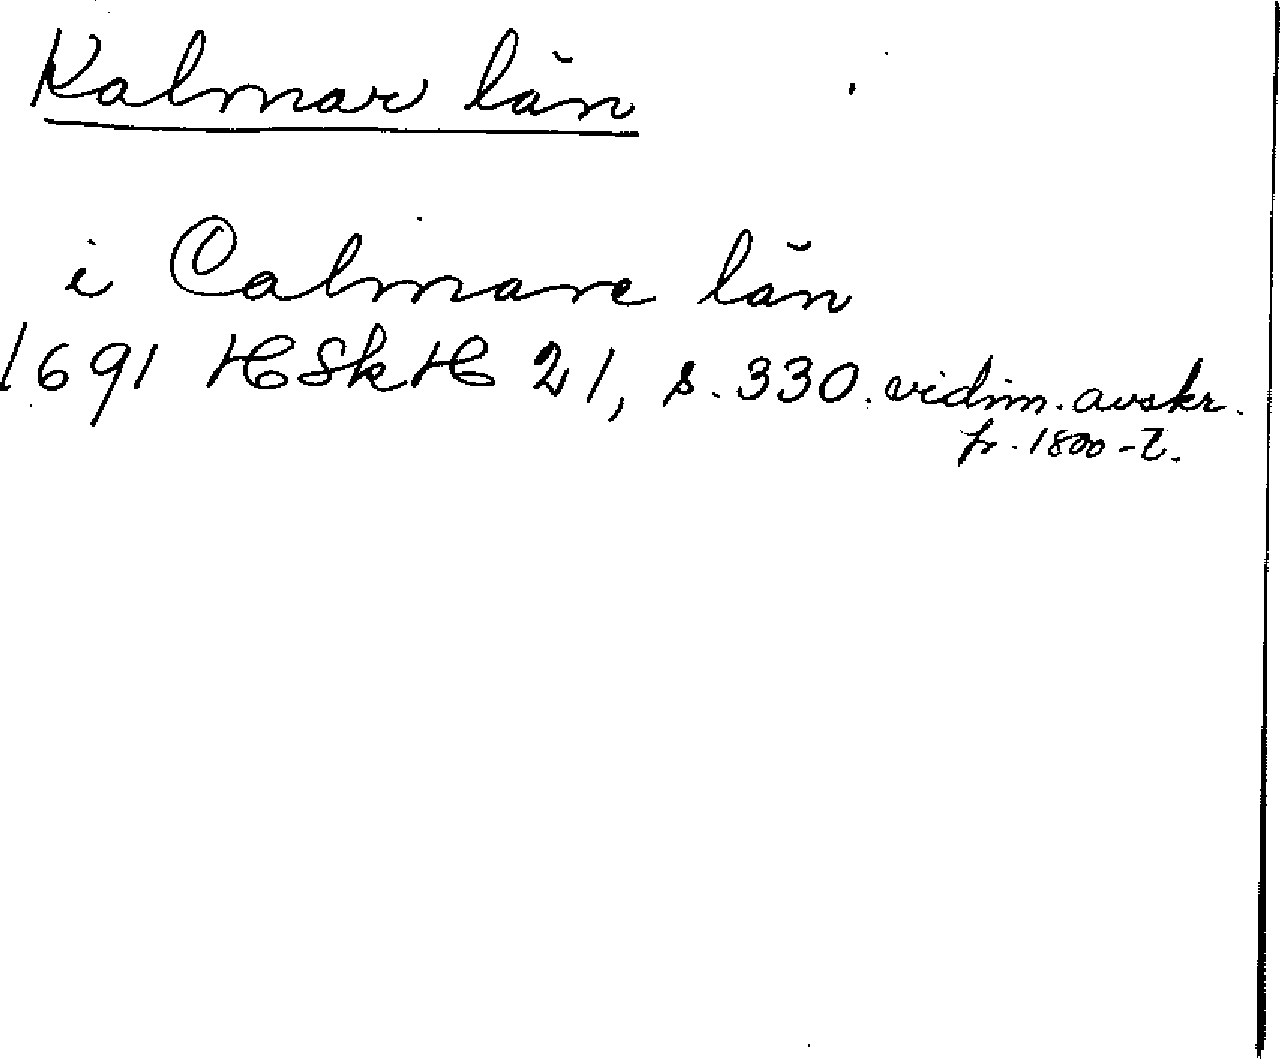 Kalmar län
i Calmare län
1691 HSkH 21, s. 330. vidim. avskr.
fr. 1800-t.